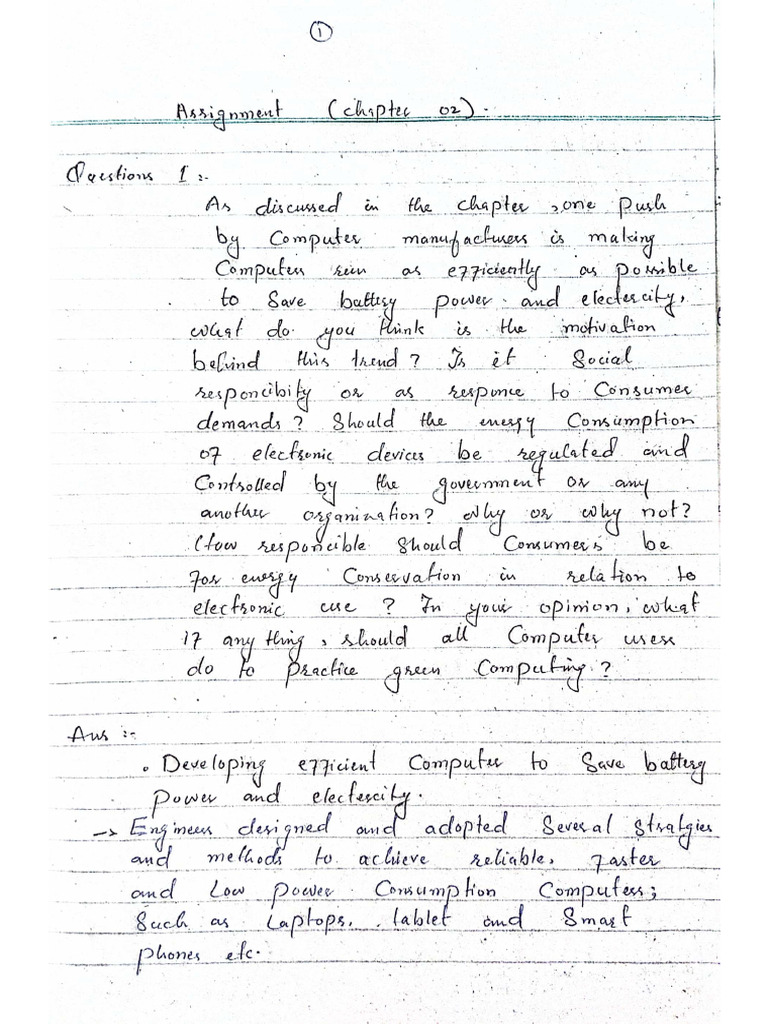 1
Assignment (chapter 02).
Questions 1 :-
As discussed in the chapter, one push
by Computer manufacturers is making
Computers run as efficiently as possible
to Save battery power and electercity,
what do you think is the motivation
behind this trend? Is it Social
responcibity or as responce to Consumer
demands? Should the energy Consumption
of electronic devices be regulated and
Controlled by the government or any
another organization? Why or why not?
How responcible Should Consumers be
for energy Conservation in relation to
electronic use? In your opinion, what
if any thing, should all Computer users
do to practice green Computing?
Ans :-
. Developing efficient Computer to Save battery
power and electercity.
-> Engineers designed and adopted Several stratgies
and methods to achieve reliable, faster
and Low power Consumption Computers;
Such as Laptops, tablet and Smart
phones etc.